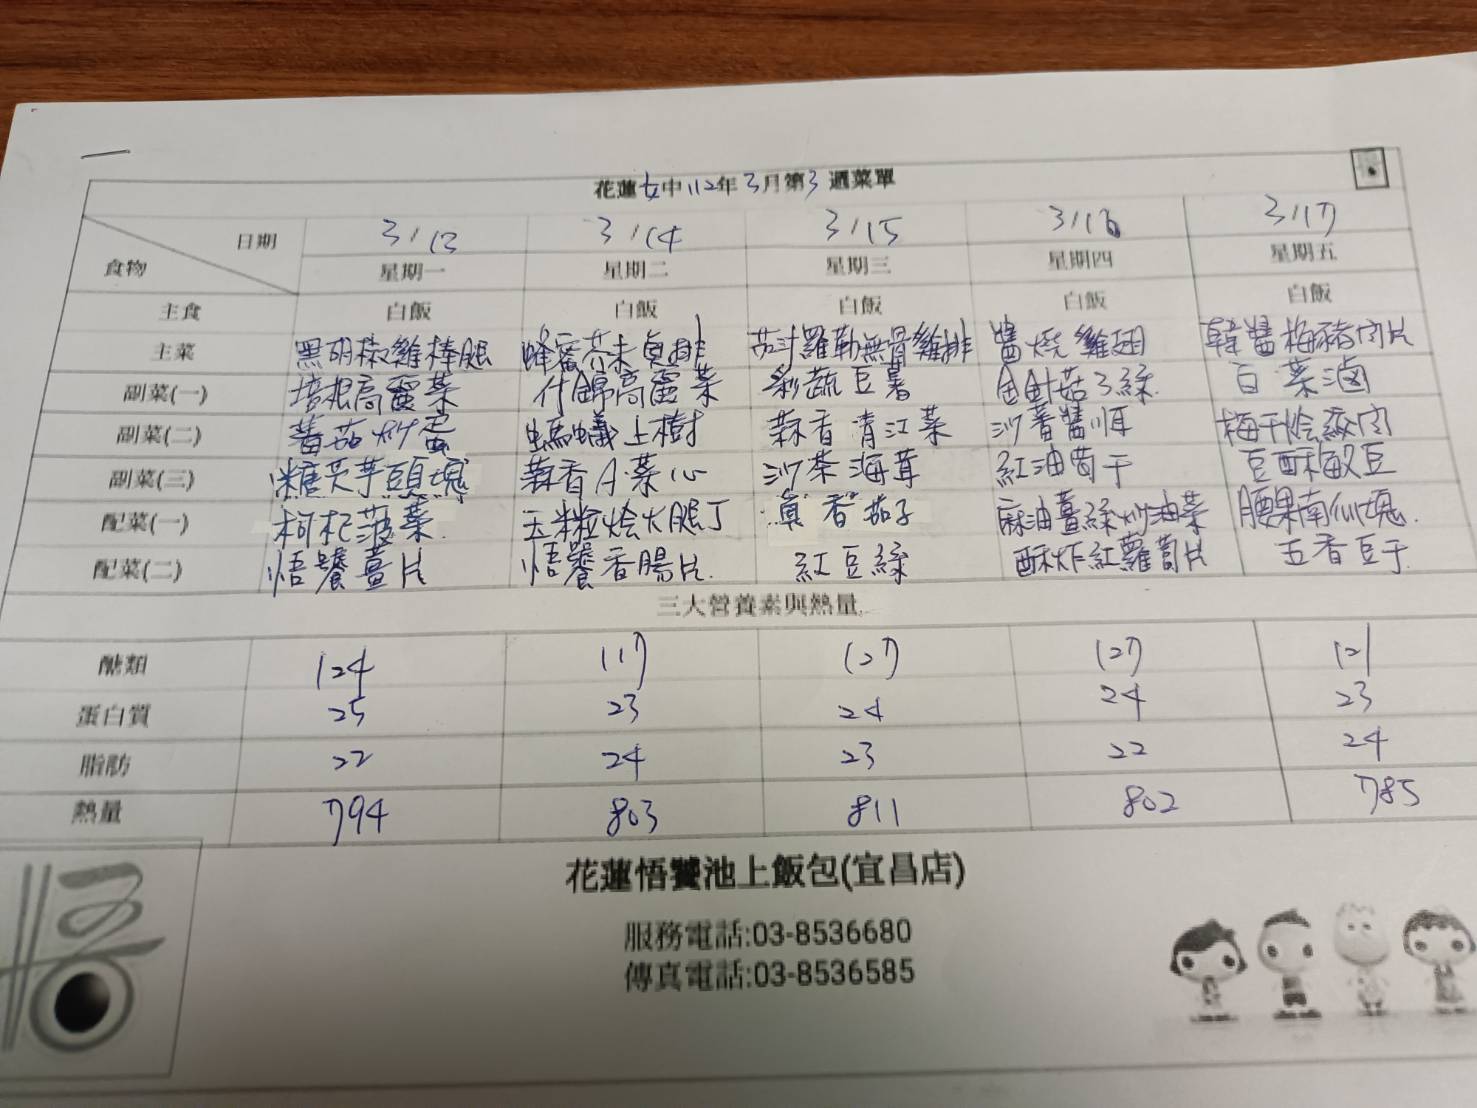 花蓮女中112年3月第3週菜單
日期 3/13 3/14 3/15 3/16 3/17
食物 星期一 星期二 星期三 星期四 星期五
主食 白飯 白飯 白飯 白飯 白飯
主菜 黑胡椒雞棒腿 蜂蜜芥末魚排 茄汁羅勒無骨雞排 醬燒雞翅 韓醬梅豬肉片
副菜(一) 培根高麗菜 什錦高麗菜 彩蔬豆薯 金針菇三絲 白菜滷
副菜(二) 蕃茄炒蛋 螞蟻上樹 蒜香青江菜 沙薯醬 梅干燴絞肉
副菜(三) 芋頭塊 蒜香A菜心 沙茶海茸 紅油筍干 豆酥敏豆
配菜(一) 枸杞菠菜 玉米粒燴火腿丁 魚香茄子 麻油薑絲炒油菜 腰果南瓜塊
配菜(二) 悟饕薑片 悟饕香腸片 紅豆絲 酥炸紅蘿蔔片 五香豆干
三大營養素與熱量
醣類 124 117 127 127 121
蛋白質 25 23 24 24 23
脂肪 22 24 23 22 24
熱量 794 803 811 802 785
悟
花蓮悟饕池上飯包(宜昌店)
服務電話:03-8536680
傳真電話:03-8536585